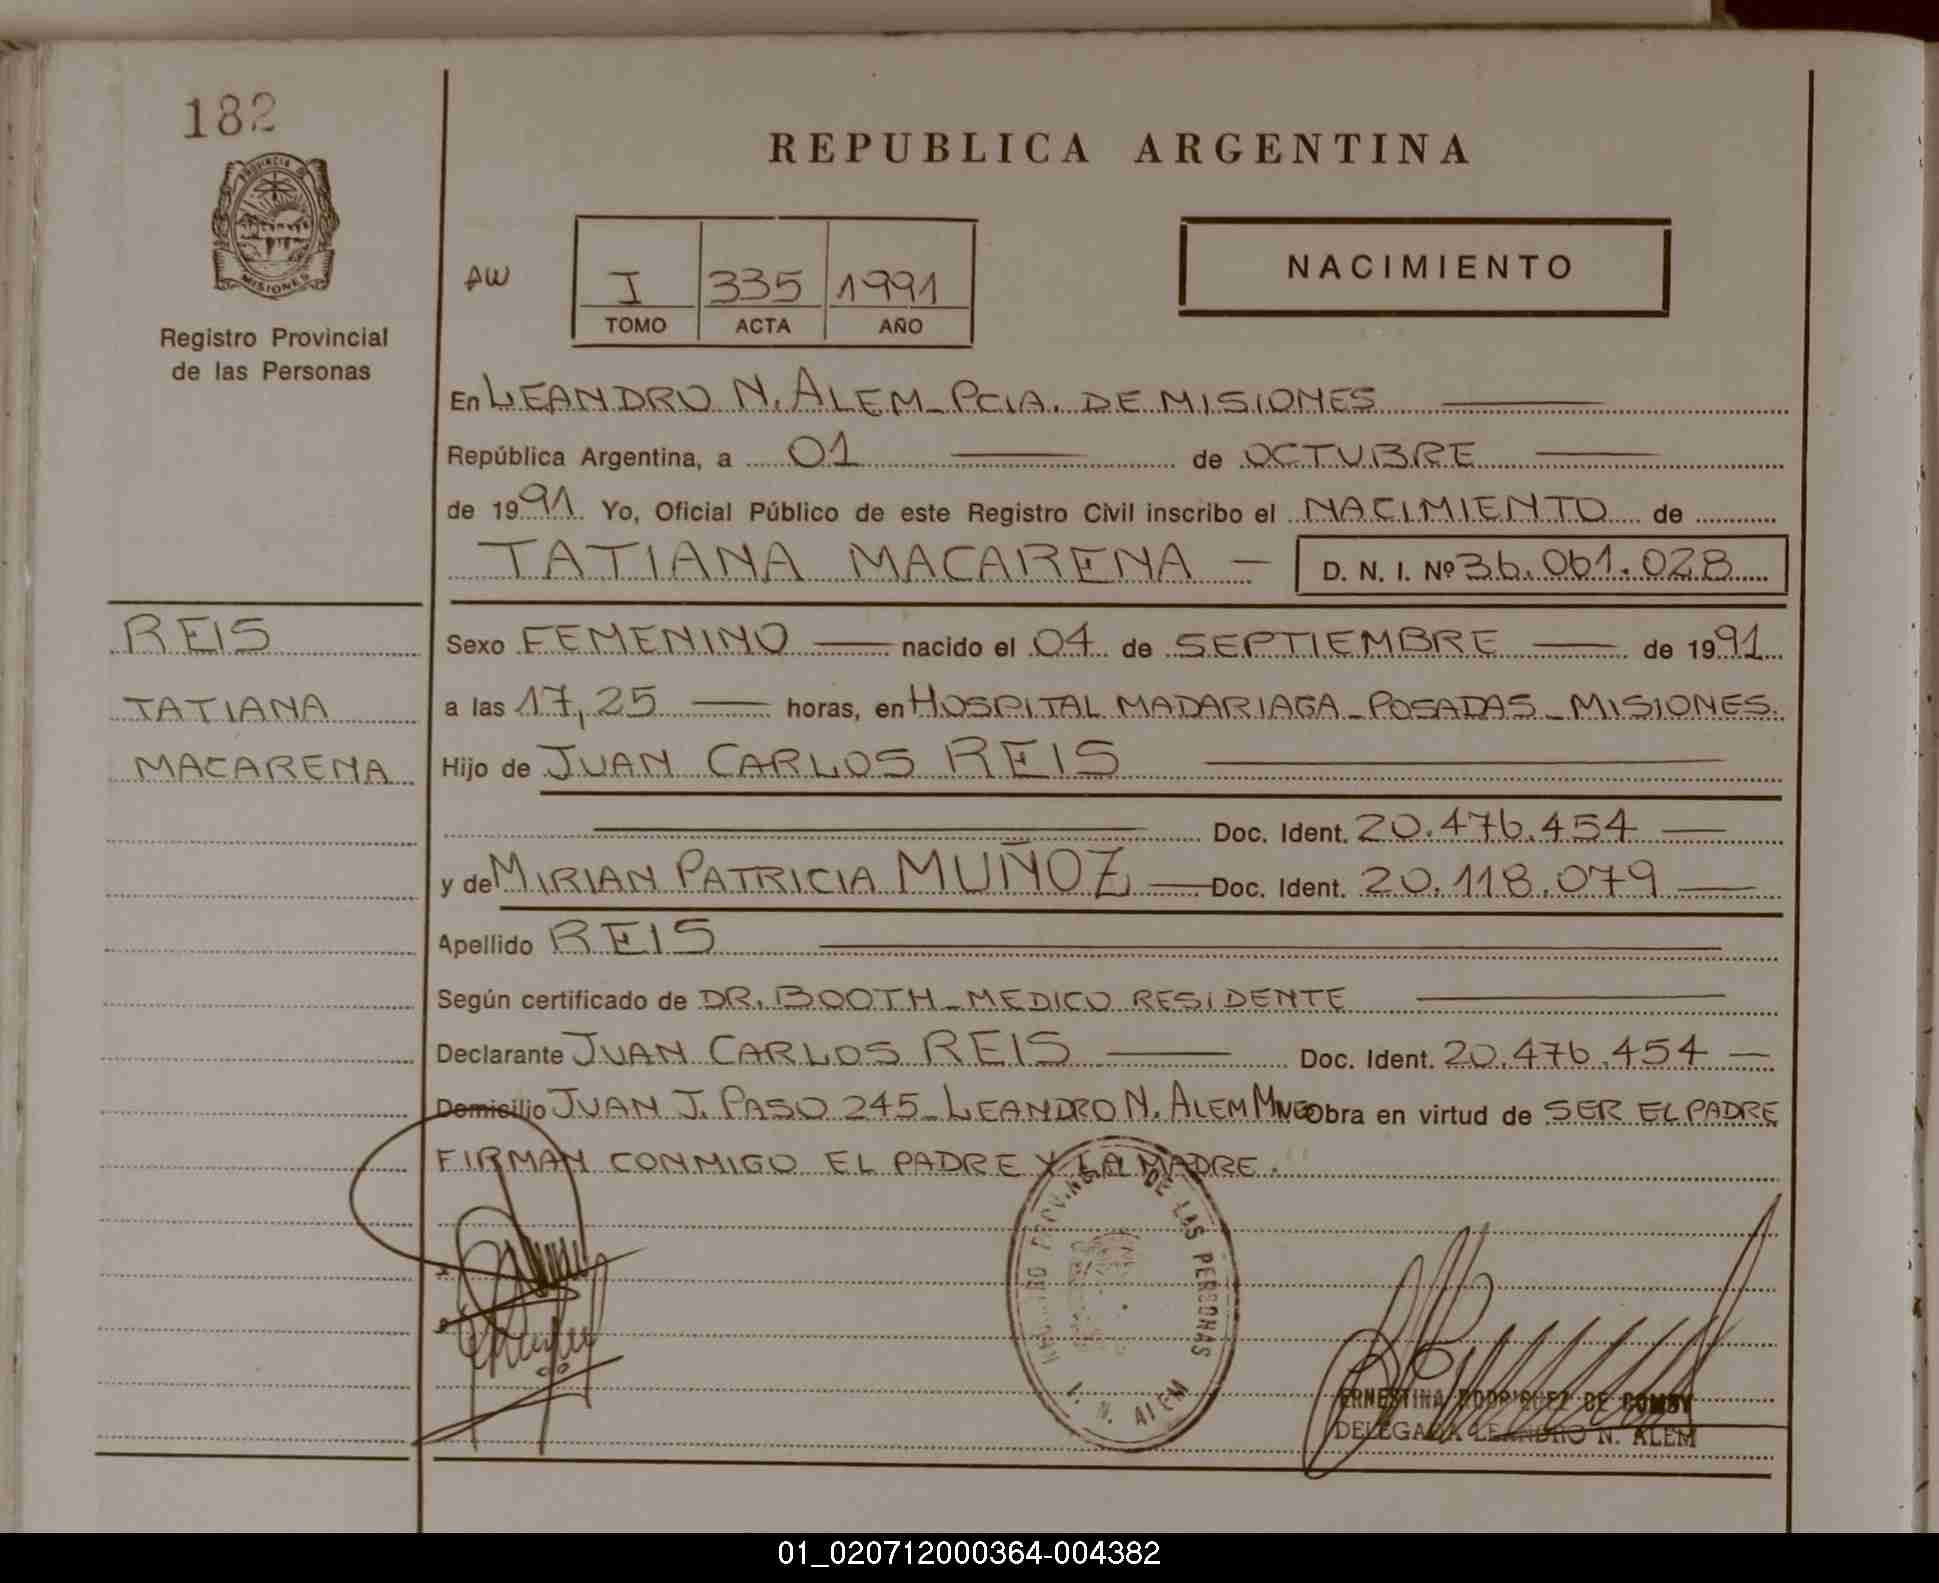 182
REPUBLICA ARGENTINA
PROVINCIA DE
MISIONES
Registro Provincial
de las Personas
AW
I 335 1991
TOMO ACTA AÑO
NACIMIENTO
En LEANDRO N. ALEM - PCIA. DE MISIONES
República Argentina, a 01 de OCTUBRE
de 1991. Yo, Oficial Público de este Registro Civil inscribo el NACIMIENTO de
TATIANA MACARENA - D. N. I. Nº 36.061.028
REIS
TATIANA
MACARENA
Sexo FEMENINO nacido el 04 de SEPTIEMBRE de 1991
a las 17,25 horas, en HOSPITAL MADARIAGA - POSADAS - MISIONES.
Hijo de JUAN CARLOS REIS
Doc. Ident. 20.476.454
y de MIRIAN PATRICIA MUÑOZ Doc. Ident. 20.118.079
Apellido REIS
Según certificado de DR. BOOTH - MEDICO RESIDENTE
Declarante JUAN CARLOS REIS Doc. Ident. 20.476.454
Domicilio JUAN J. PASO 245 - LEANDRO N. ALEM Mnes Obra en virtud de SER EL PADRE
FIRMAN CONMIGO EL PADRE Y LA MADRE.
DE LAS PERSONAS
L. N. ALEM
ERNESTINA RODRIGUEZ DE
DELEGADA LEANDRO N. ALEM
01_020712000364-004382